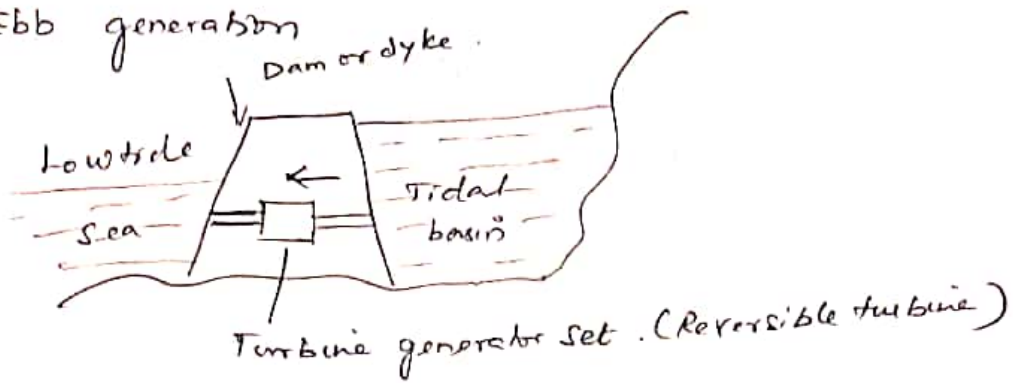 Ebb generation
Dam or dyke.
Low tide
Sea
Tidal
basin
Turbine generator set. (Reversible turbine)